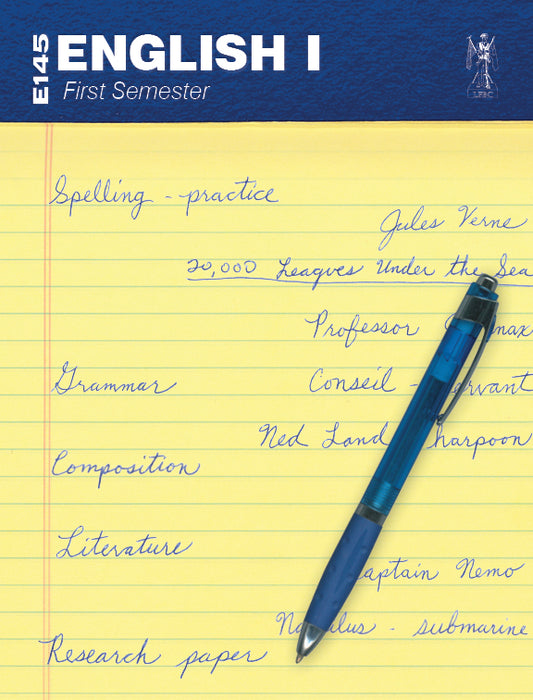 E145
ENGLISH I
First Semester
LFBC
Spelling - practice
Jules Verne
20,000 Leagues Under the Sea
Professor
Grammar
Conseil -
Ned Land harpoon
Composition
Literature
Captain Nemo
submarine
Research paper